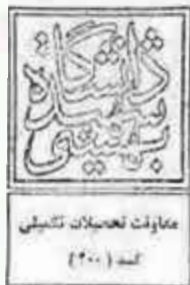 دانشگاه
شهید
بهشتی
معاونت تحصیلات تکمیلی
کد (۴۰۰)